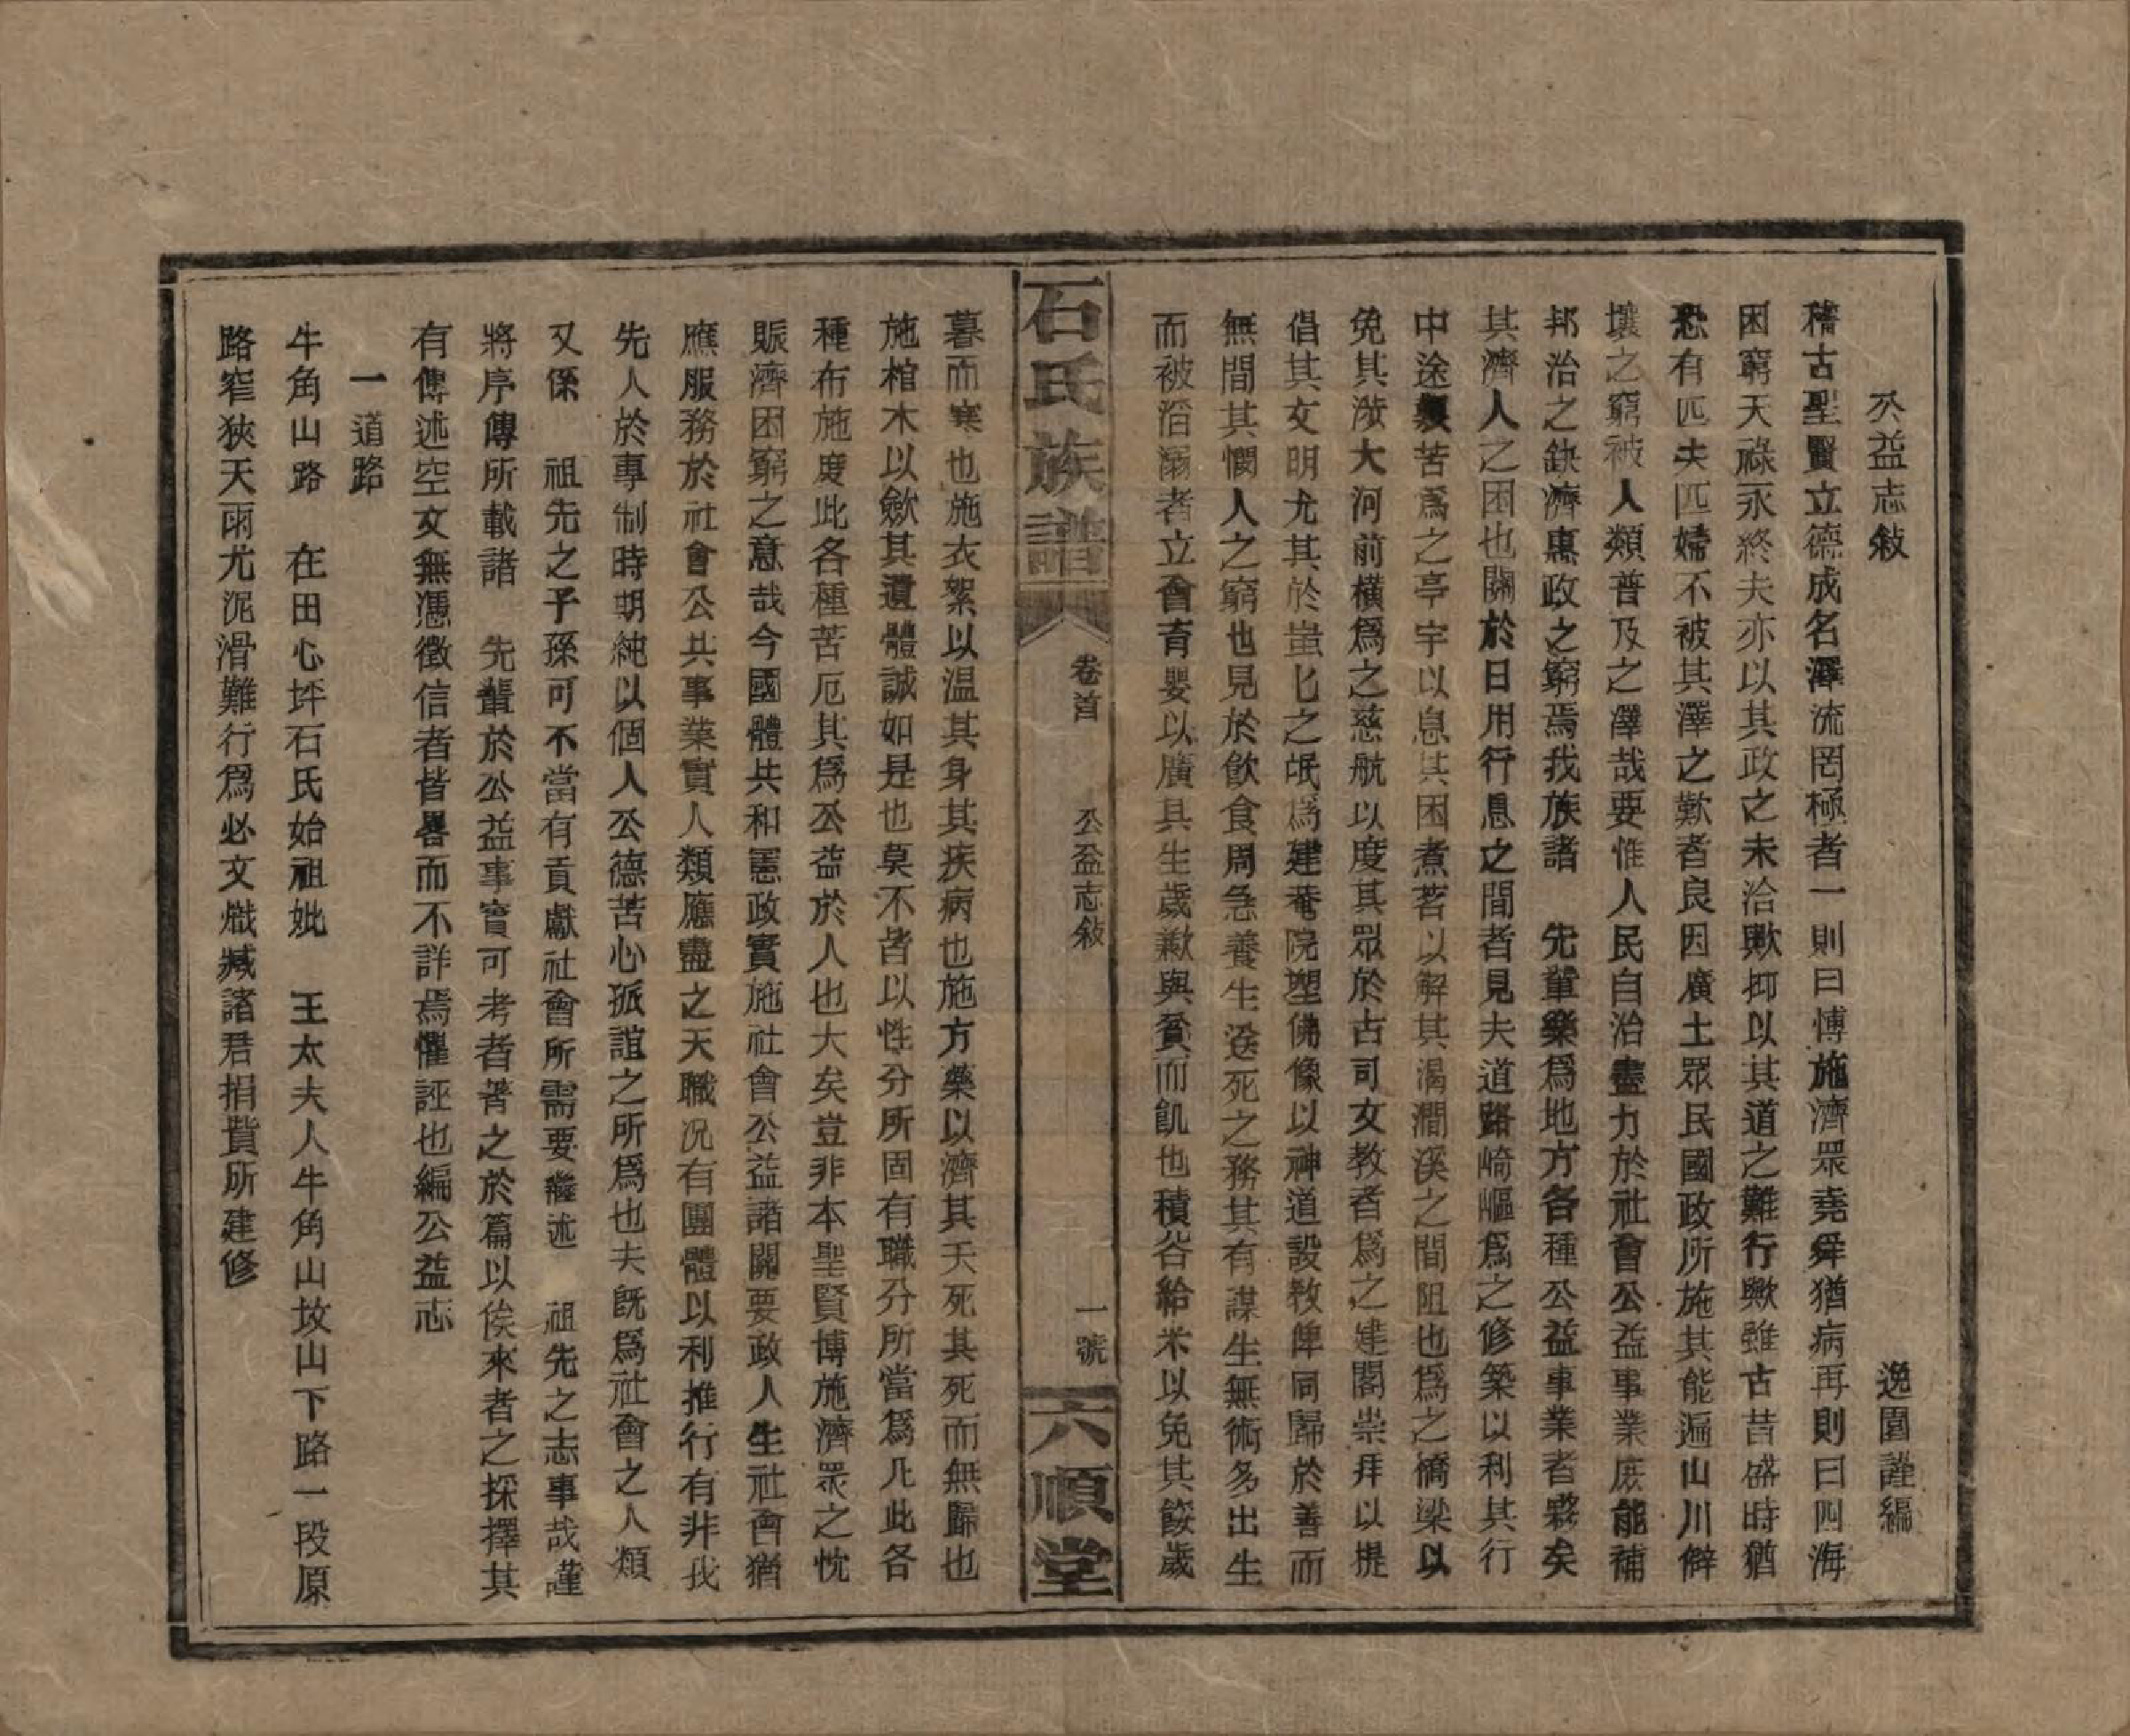 公益志敍
逸園謹編
稽古聖賢立德成名澤流罔極者一則曰博施濟眾堯舜猶病再則曰四海
困窮天祿永終夫亦以其政之未洽歟抑以其道之難行歟雖古昔盛時猶
恐有匹夫匹婦不被其澤之歎者良因廣土眾民國政所施其能遍山川僻
壤之窮被人類普及之澤哉要惟人民自治盡力於社會公益事業庶能補
邦治之缺濟惠政之窮焉我族諸　先輩樂爲地方各種公益事業者夥矣
其濟人之困也關於日用行息之間者見夫道路崎嶇爲之修築以利其行
中途艱苦爲之亭宇以息其困煮茗以解其渴澗溪之間阻也爲之橋梁以
免其涉大河前橫爲之慈航以度其眾於古司文教者爲之建閣崇拜以提
倡其文明尤其於蚩匕之氓爲建菴院塑佛像以神道設教俾同歸於善而
無間其憫人之窮也見於飲食周急養生送死之務其有謀生無術多出生
而被滔溺者立會育嬰以廣其生歲歉與貧而飢也積谷給米以免其餒歲
暮而寒也施衣絮以温其身其疾病也施方藥以濟其夭死其死而無歸也
施棺木以歛其遺體誠如是也莫不皆以性分所固有職分所當爲凡此各
種布施度此各種苦厄其爲公益於人也大矣豈非本聖賢博施濟眾之忱
賑濟困窮之意哉今國體共和憲政實施社會公益諸關要政人生社會猶
應服務於社會公共事業實人類應盡之天職况有團體以利推行有非我
先人於專制時期純以個人公德苦心孤誼之所爲也夫旣爲社會之人類
又係　祖先之子孫可不當有貢獻社會所需要繼述　祖先之志事哉謹
將序傳所載諸　先輩於公益事實可考者著之於篇以俟來者之採擇其
有傳述空文無憑徵信者皆畧而不詳焉懼誣也編公益志
一　道路
牛角山路　在田心坪石氏始祖妣　王太夫人牛角山坟山下路一段原
路窄狹天雨尤泥滑難行爲必文熾臧諸君捐貲所建修
石氏族譜
卷首
公益志敍
一號
六順堂